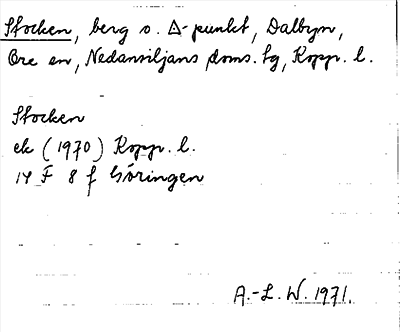 Stocken, berg o. Δ-punkt, Dalbyn,
Ore sn, Nedansiljans doms. tg, Kopp. l.
Stocken
ek (1970) Kopp. l.
14 F 8 f Göringen
A.-L. W. 1971.